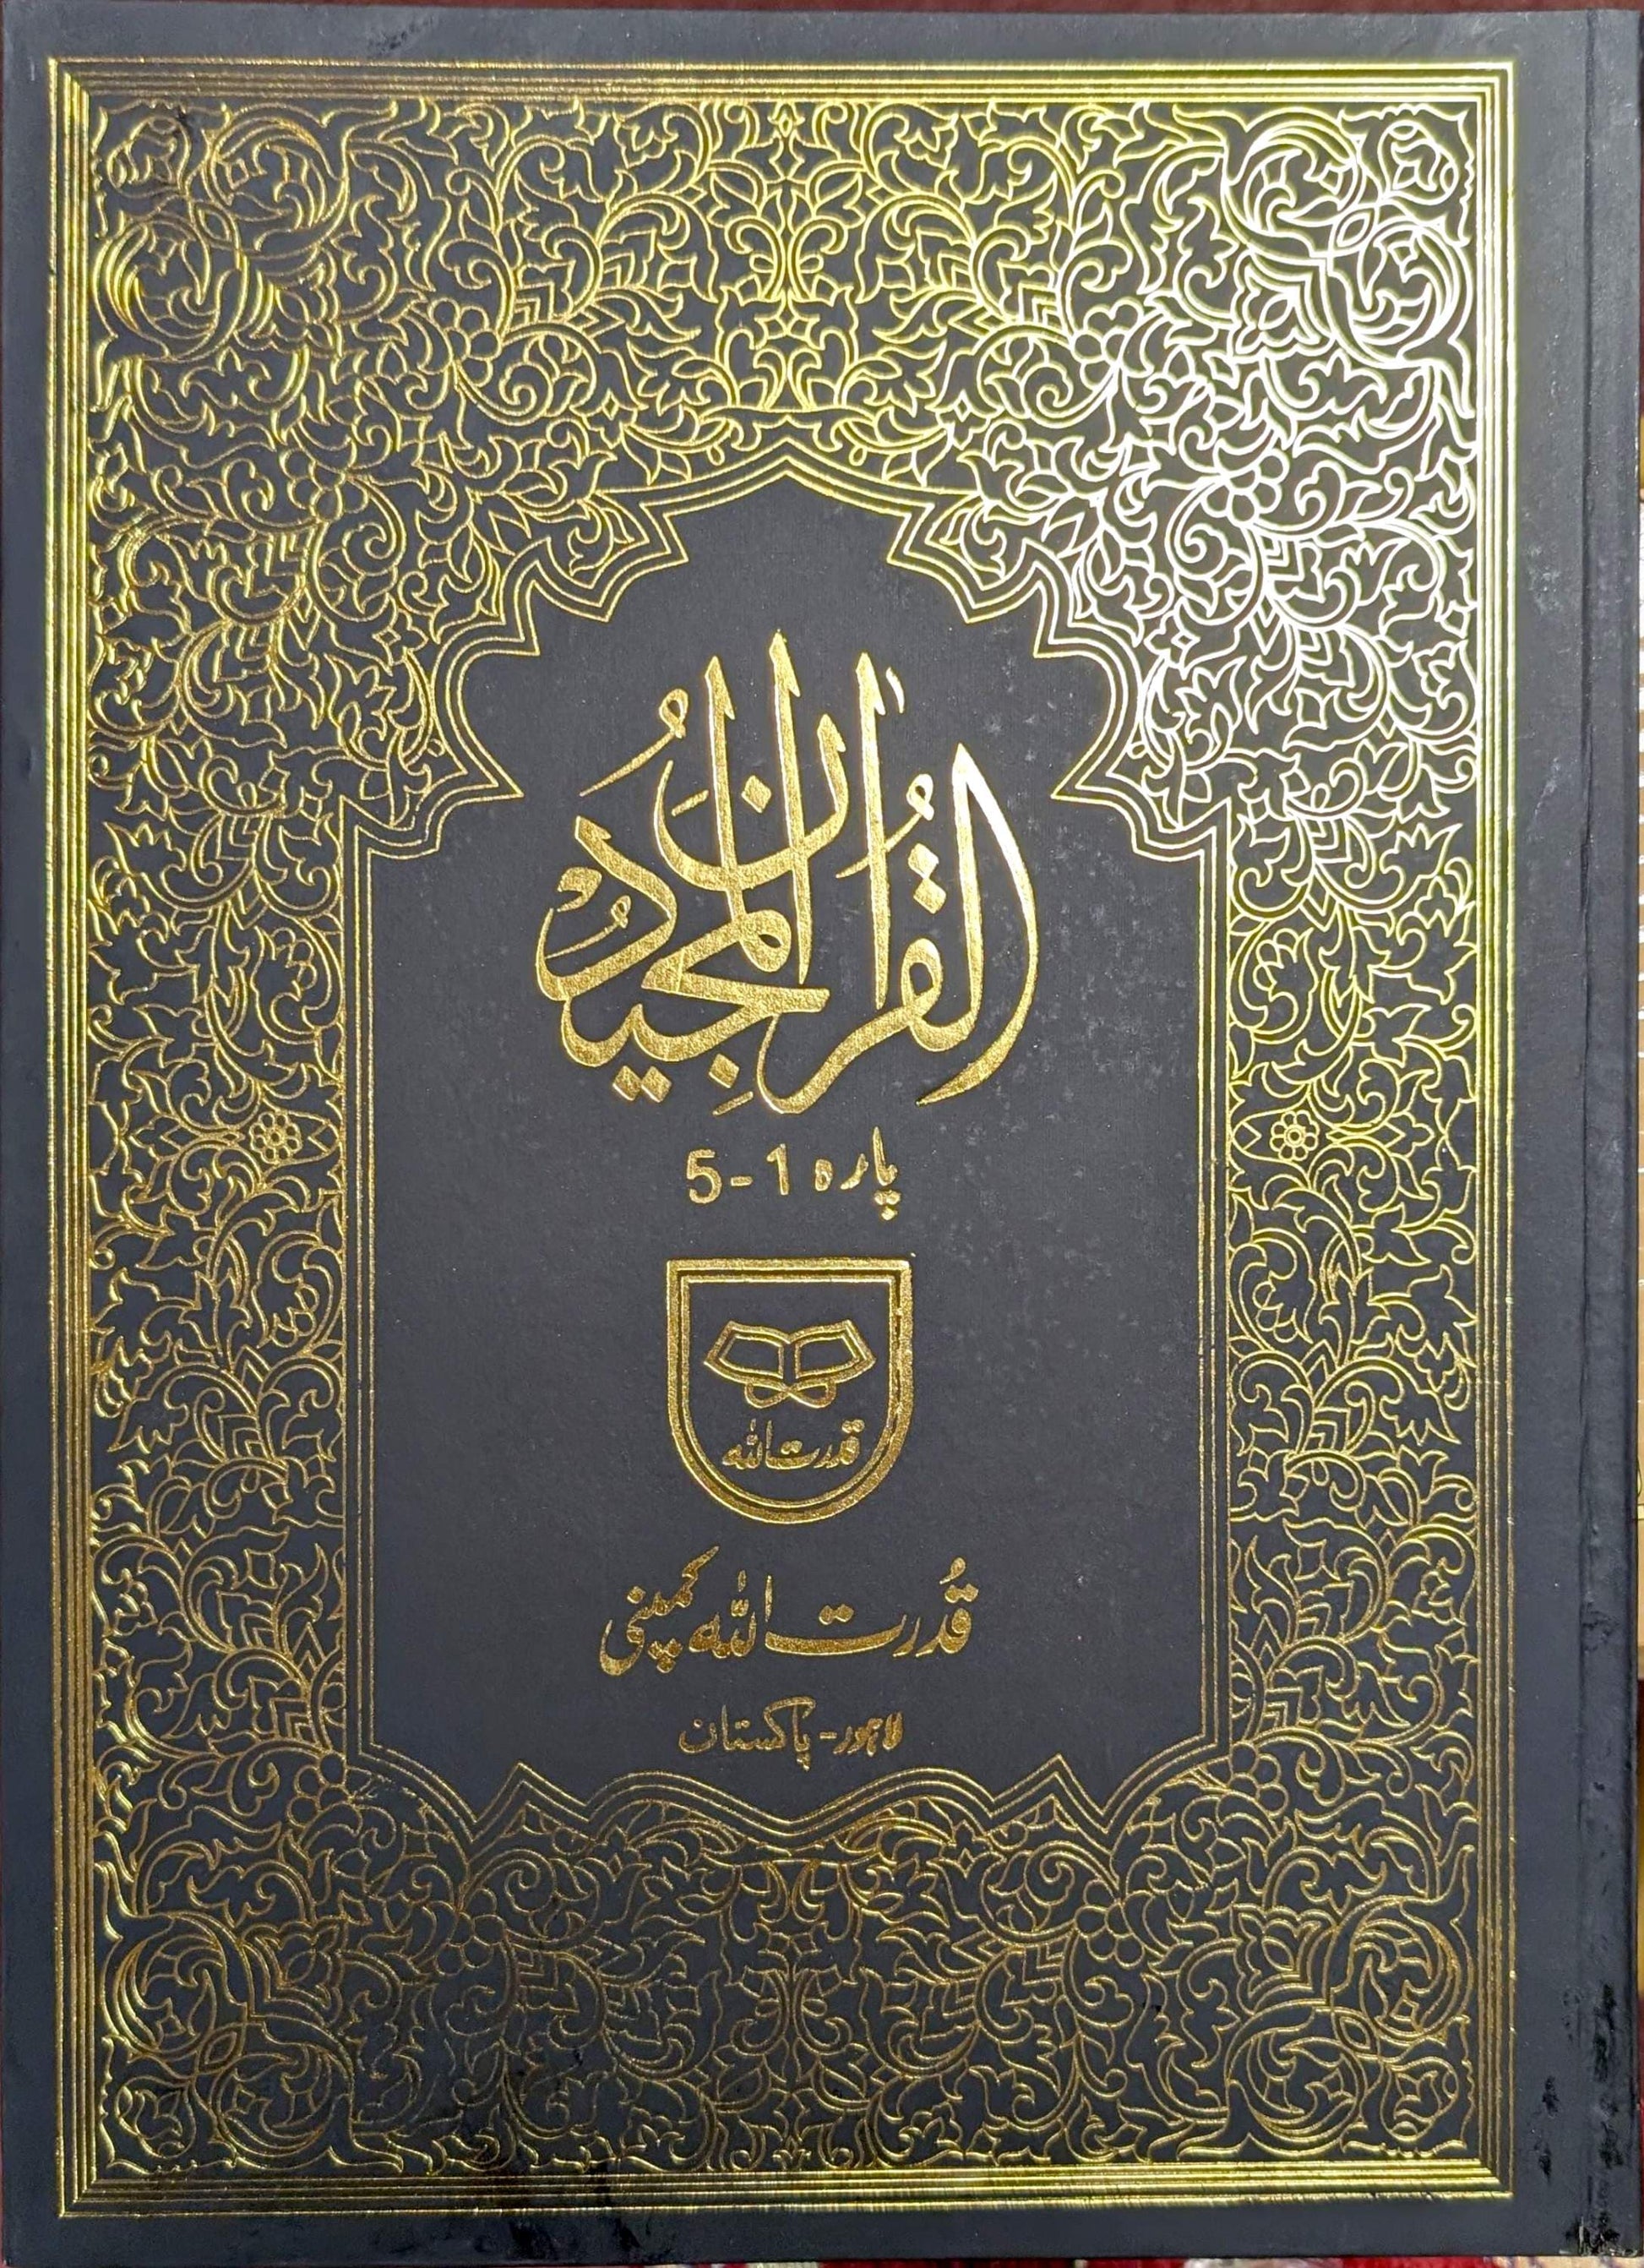 القرآن المجيد
پارہ 1-5
قدرت اللہ
قُدرت اللہ کمپنی
لاہور - پاکستان